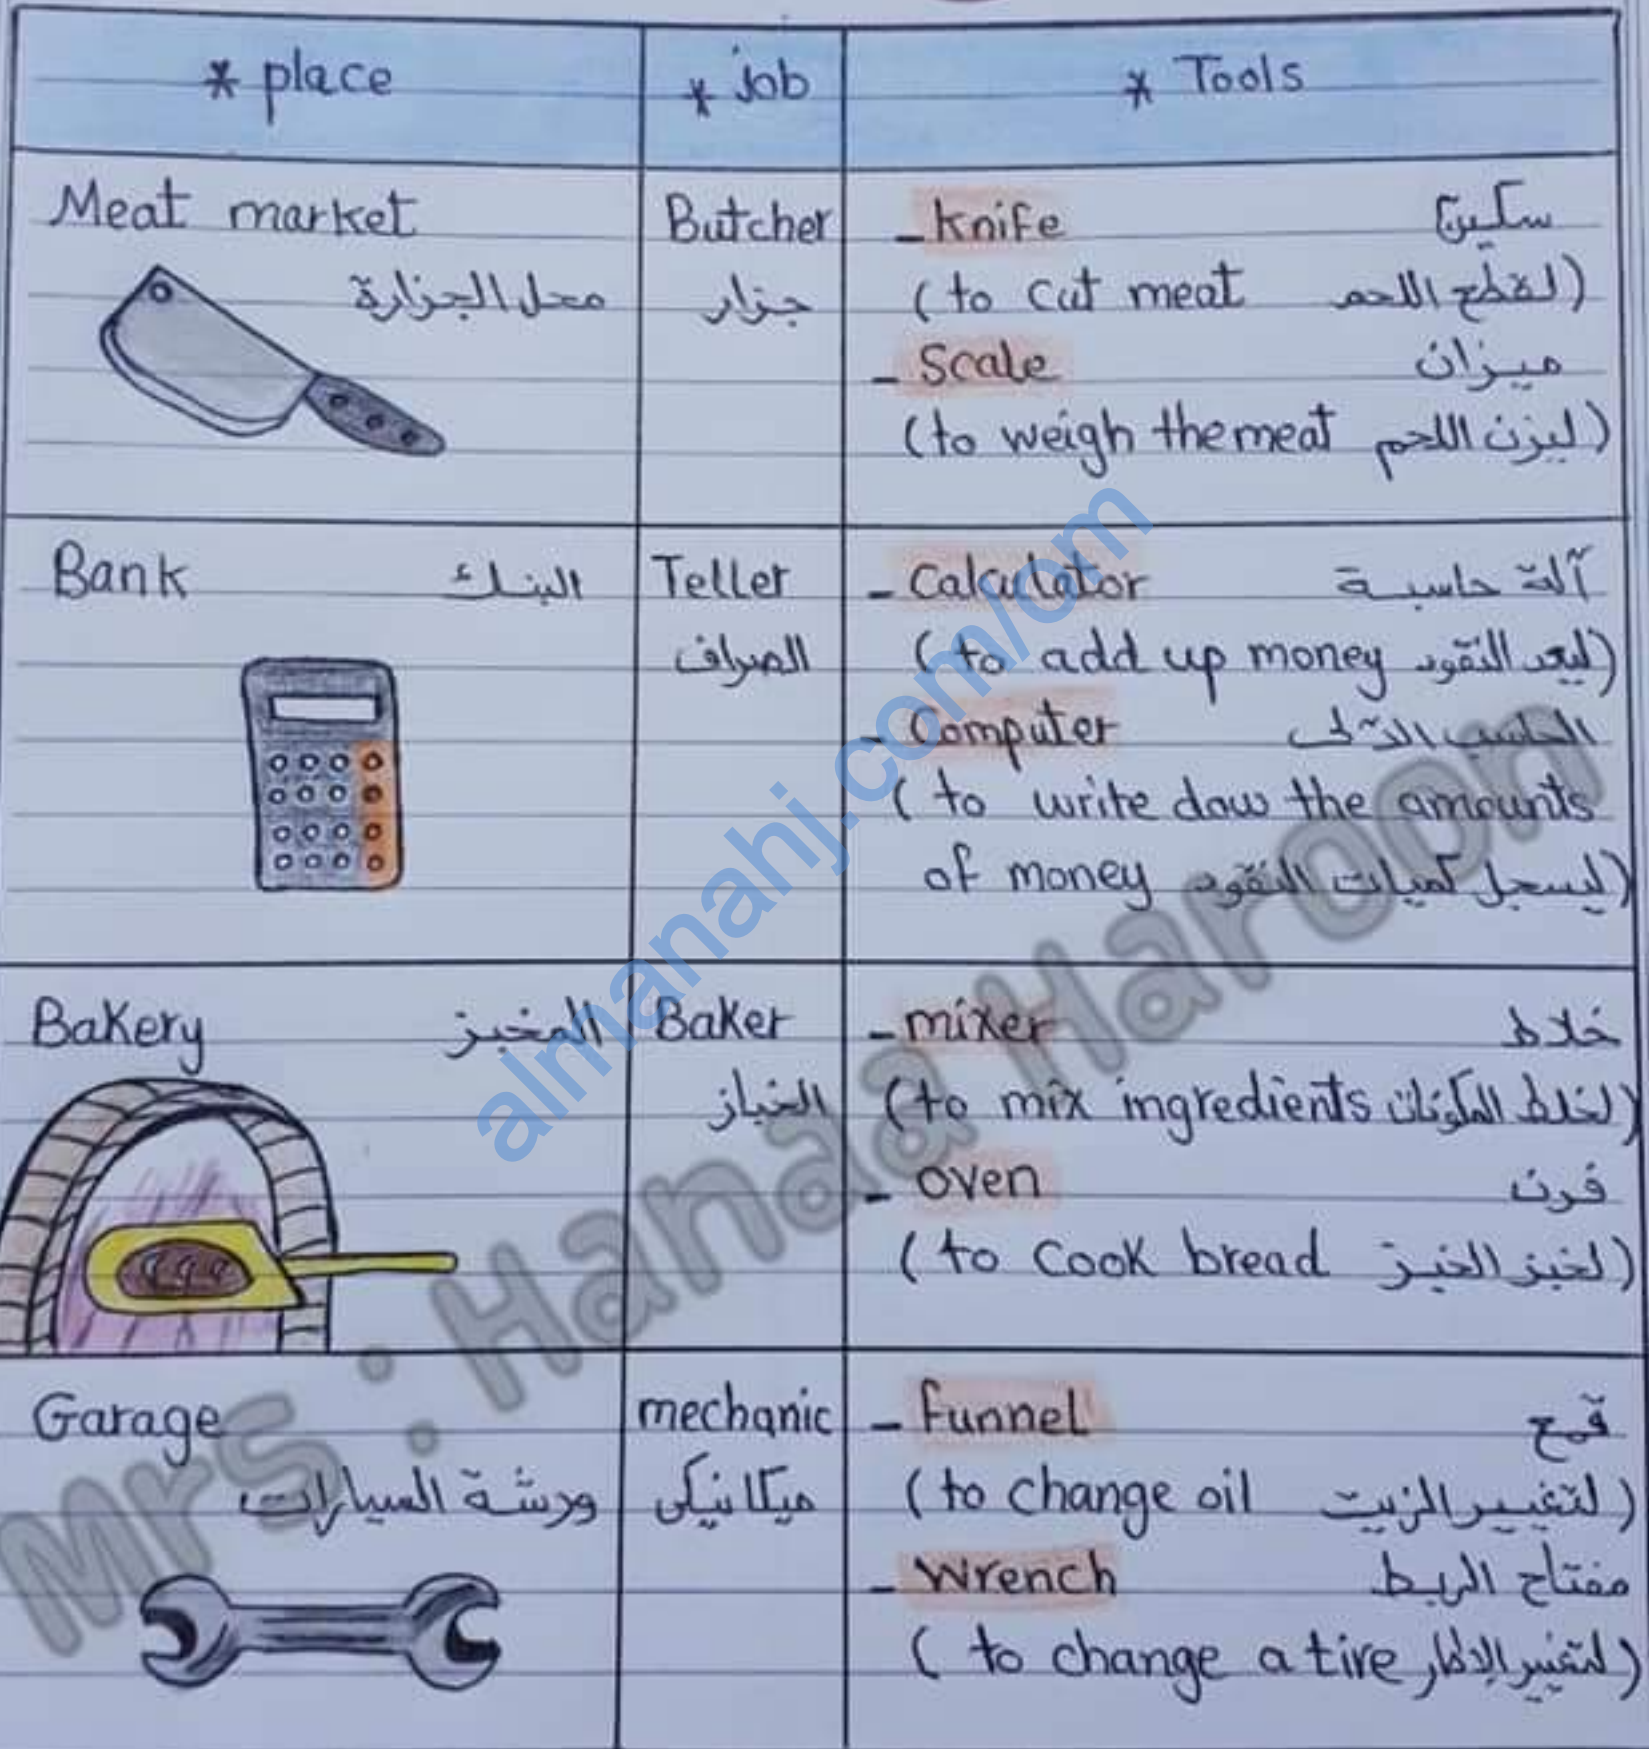 * place * Job * Tools
Meat market Butcher - knife سكين
محل الجزارة جزار (to cut meat لقطع اللحم)
- Scale ميزان
(to weigh the meat ليزن اللحم)
Bank البنك Teller - Calculator آلة حاسبة
الصراف (to add up money ليعد النقود)
- Computer الحاسب الآلى
(to write daw the amounts
of money ليسجل كميات النقود)
Bakery المخبز Baker - mixer خلاط
الخباز (to mix ingredients لخلط المكونات)
- oven فرن
(to Cook bread لخبز الخبز)
Garage mechanic - funnel قمع
ورشة السيارات ميكانيكى (to change oil لتغيير الزيت)
- wrench مفتاح الربط
(to change a tire لتغيير الإطار)
almanahj.com/om
Mrs : Hanaa Haroon